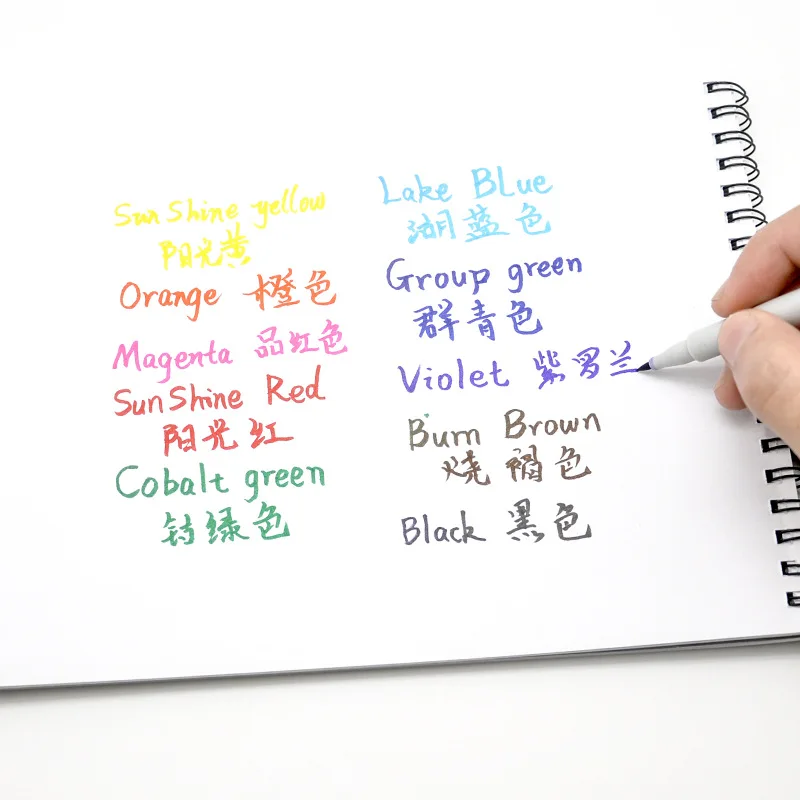 SunShine yellow
阳光黄
Orange 橙色
Magenta 品红色
SunShine Red
阳光红
Cobalt green
钴绿色
Lake Blue
湖蓝色
Group green
群青色
Violet 紫罗兰
Burn Brown
烧褐色
Black 黑色